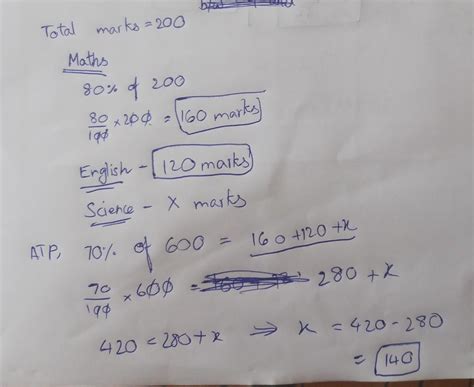 Total marks = 200
Maths
80% of 200
80/100 × 200 = 160 marks
English - 120 marks
Science - x marks
ATP, 70% of 600 = 160+120+x
70/100 × 600 = 280 + x
420 = 280+x ⇒ x = 420 - 280
= 140